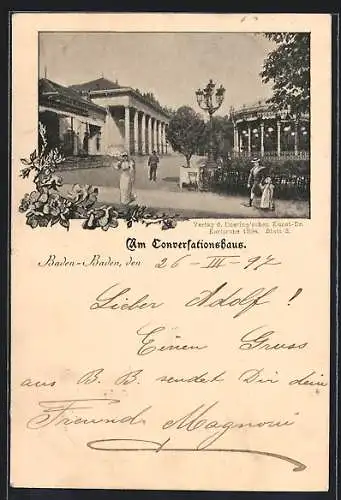 Verlag d. Doering'schen Kunst-Dr.
Karlsruhe 1894. Blatt 2.
Am Conversationshaus.
Baden-Baden, den 26-III-97
Lieber Adolf!
Einen Gruss
aus B. B. sendet Dir dein
Freund Magnoni